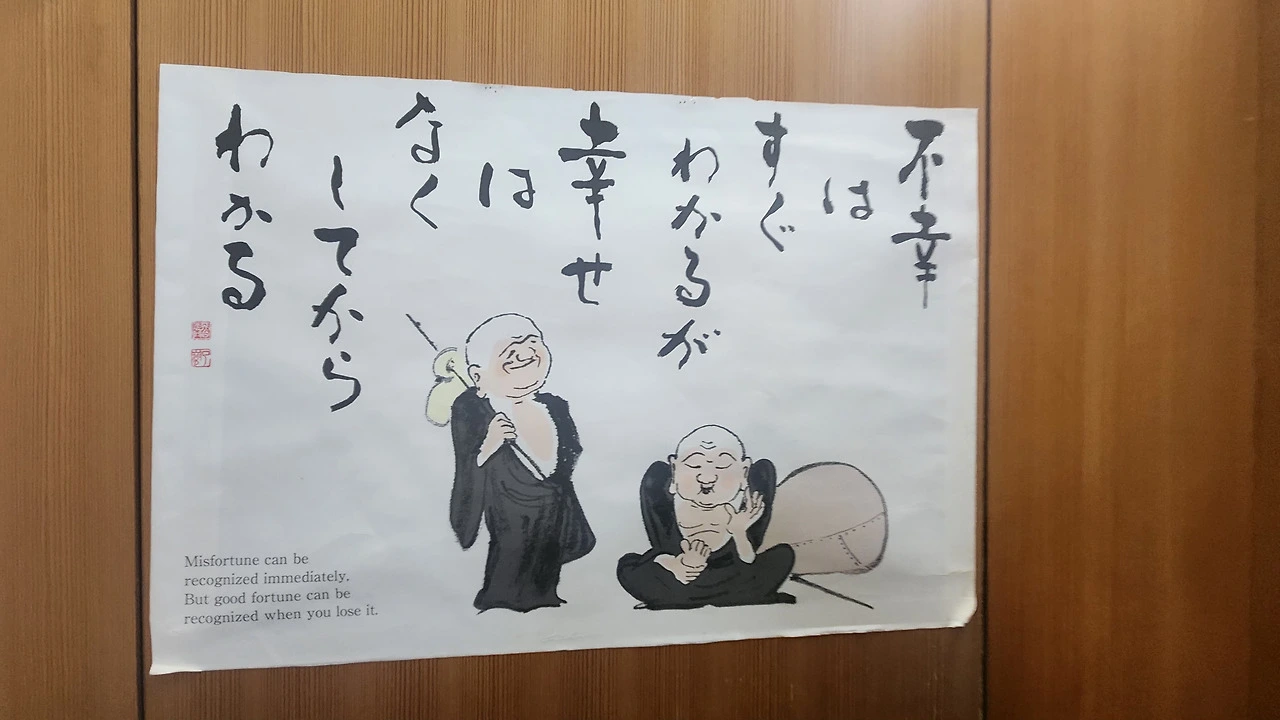 不幸
は
すぐ
わかるが
幸せ
は
なく
してから
わかる
Misfortune can be
recognized immediately.
But good fortune can be
recognized when you lose it.